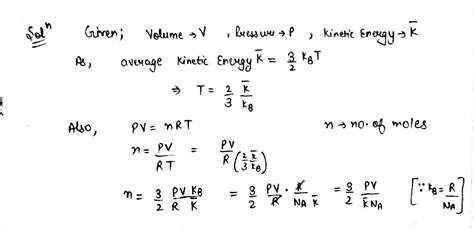 Solⁿ Given; Volume → V , Pressure → P , Kinetic Energy → K̄
As, average Kinetic Energy K̄ = 3/2 k_B T
⇒ T = 2/3 K̄/k_B
Also, PV = nRT n → no. of moles
n = PV/RT = PV/R(2/3 K̄/k_B)
n = 3/2 PV/R k_B/K̄ = 3/2 PV/R · R/N_A K̄ = 3/2 PV/K̄N_A [∵ k_B = R/N_A]